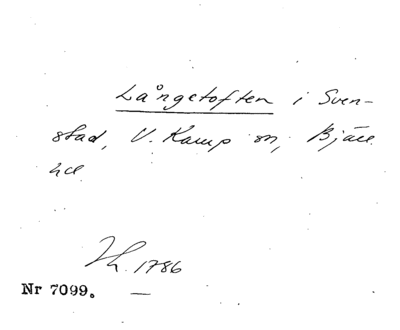 Långetoften i Sven-
stad, V. Karup sn, Bjäre
hd.
Th. 1786
Nr 7099. —